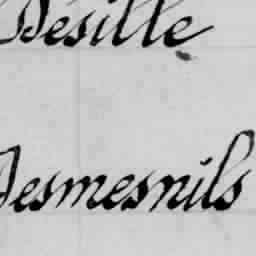 Désille
Desmesnils